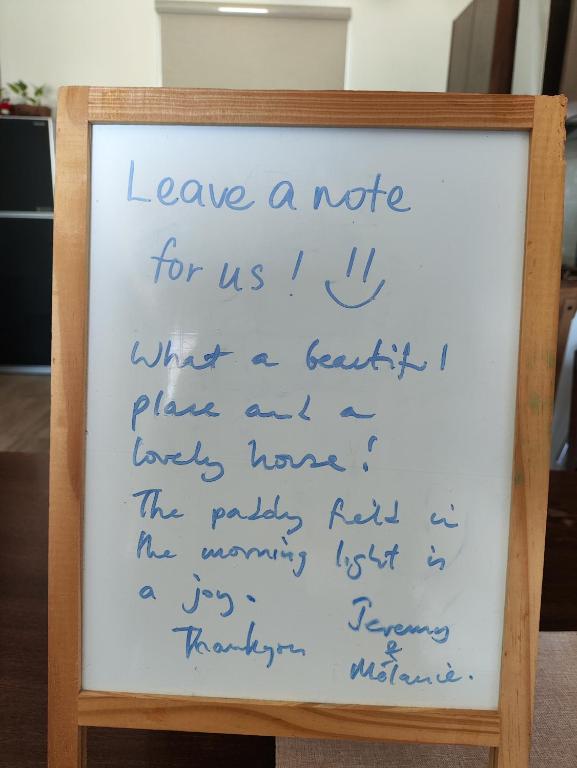 Leave a note
for us!
What a beautiful
place and a
lovely house!
The paddy field in
the morning light is
a joy.
Thankyou
Jeremy
&
Mélanie.